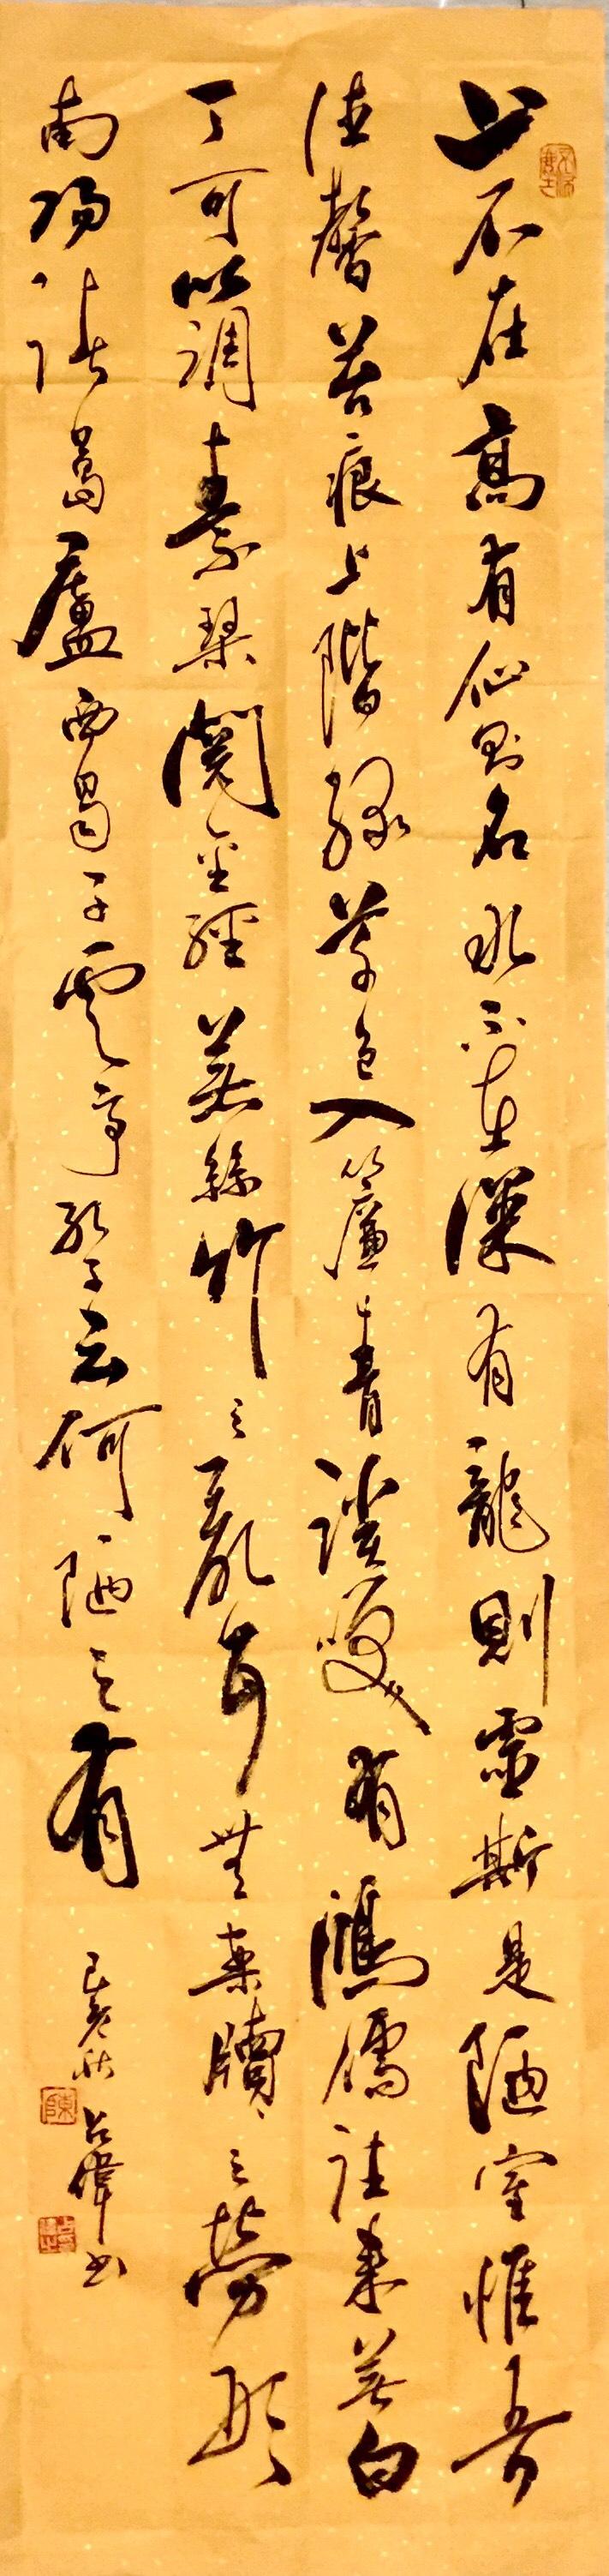 山不在高有仙則名水不在深有龍則靈斯是陋室惟吾
德馨苔痕上階緑草色入簾青談笑有鴻儒往來無白
丁可以調素琴閱金經無絲竹之亂耳無案牘之勞形
南陽諸葛廬西蜀子雲亭孔子云何陋之有
己亥秋占偉书
陳